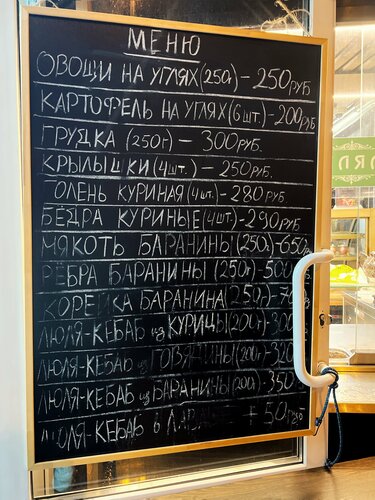 МЕНЮ
ОВОЩИ НА УГЛЯХ (250г) - 250 РУБ
КАРТОФЕЛЬ НА УГЛЯХ (6 шт.) - 200 РУБ
ГРУДКА (250г) — 300 РУБ.
КРЫЛЫШКИ (4 шт.) - 250 РУБ.
ГОЛЕНЬ КУРИНАЯ (4 шт.) - 280 РУБ
БЁДРА КУРИНЫЕ (4 шт.) - 290 РУБ
МЯКОТЬ БАРАНИНЫ (250г) - 650
РЁБРА БАРАНИНЫ (250г) - 500
КОРЕЙКА БАРАНИНА (250г) -
ЛЮЛЯ-КЕБАБ из КУРИЦЫ (200г) - 300
ЛЮЛЯ-КЕБАБ из ГОВЯДИНЫ (200г) - 320
ЛЮЛЯ-КЕБАБ из БАРАНИНЫ (200) - 350
ЛЮЛЯ-КЕБАБ в + 50 РУБ